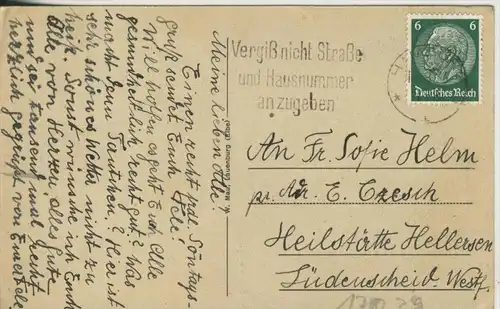 Meine lieben Alle!
Einen recht frdl. Sonntags-
gruß sendet Euch Hele!
Will hoffen es geht Euch Alle
gesundheitlich recht gut? Was
macht denn Tantchen? Hier ist
sehr schönes Wetter nicht zu
heiß. Sonst wünsche ich Euch
Alle von Herzen alles Gute
und sei tausend mal recht
herzlich gegrüßt von Eurer Hele
Vergiß nicht Straße
und Hausnummer
anzugeben
6 6
Deutsches Reich
An Fr. Sofie Helm
pr. Adr. E. Czesch
Heilstätte Hellersen
Lüdenscheid. Westf.